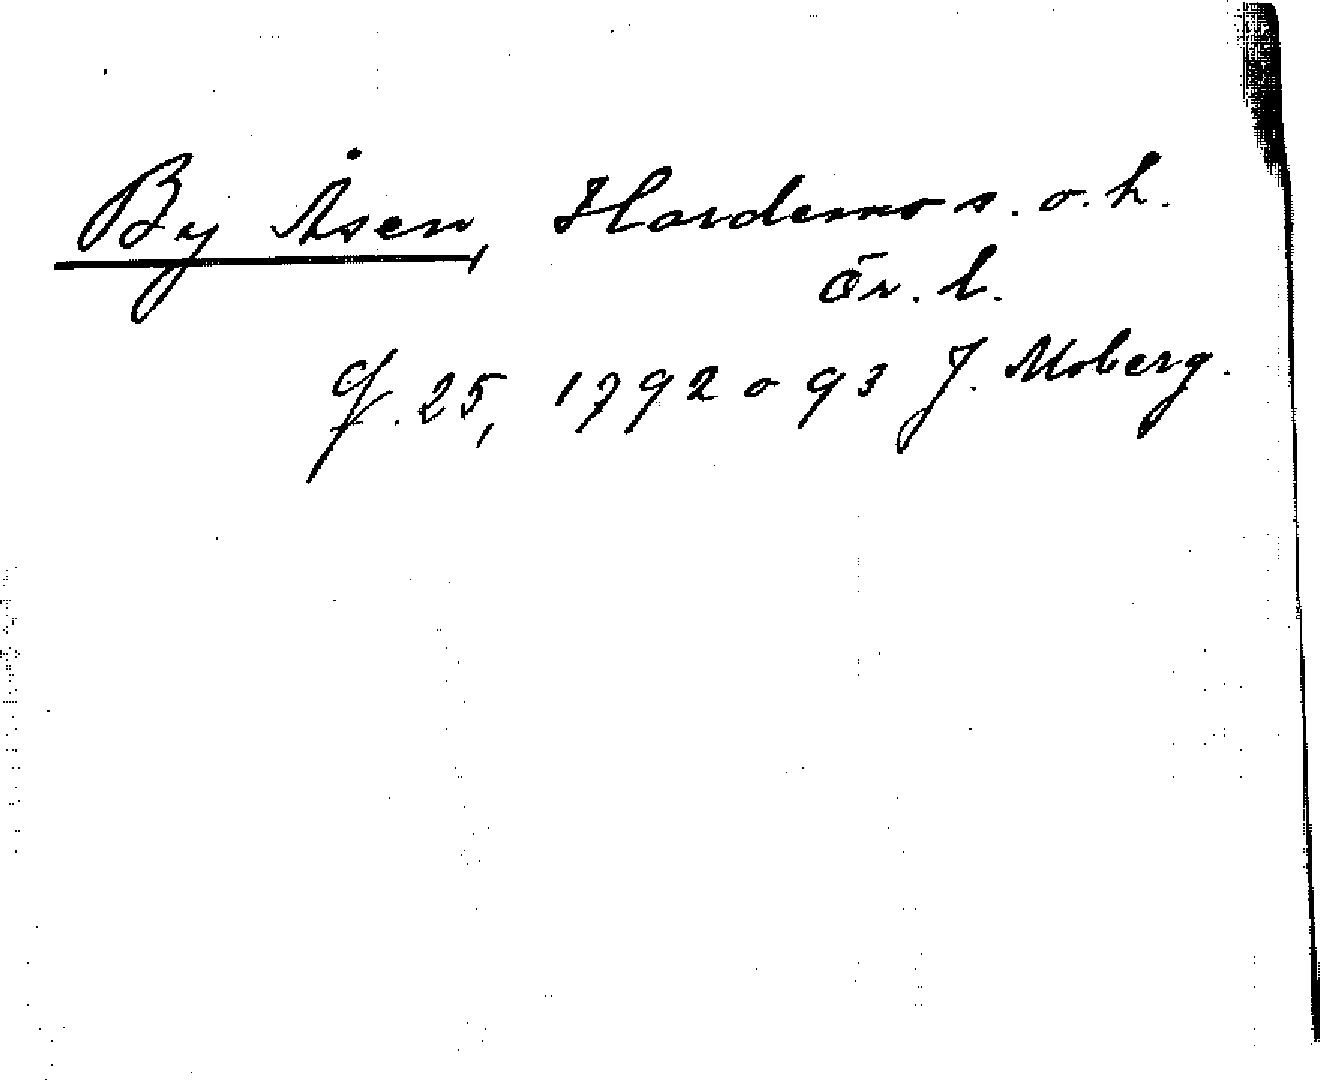 By Åsen, Hardemo s. o. h.
Ör. l.
gf. 25, 1792 o 93 J. Moberg.